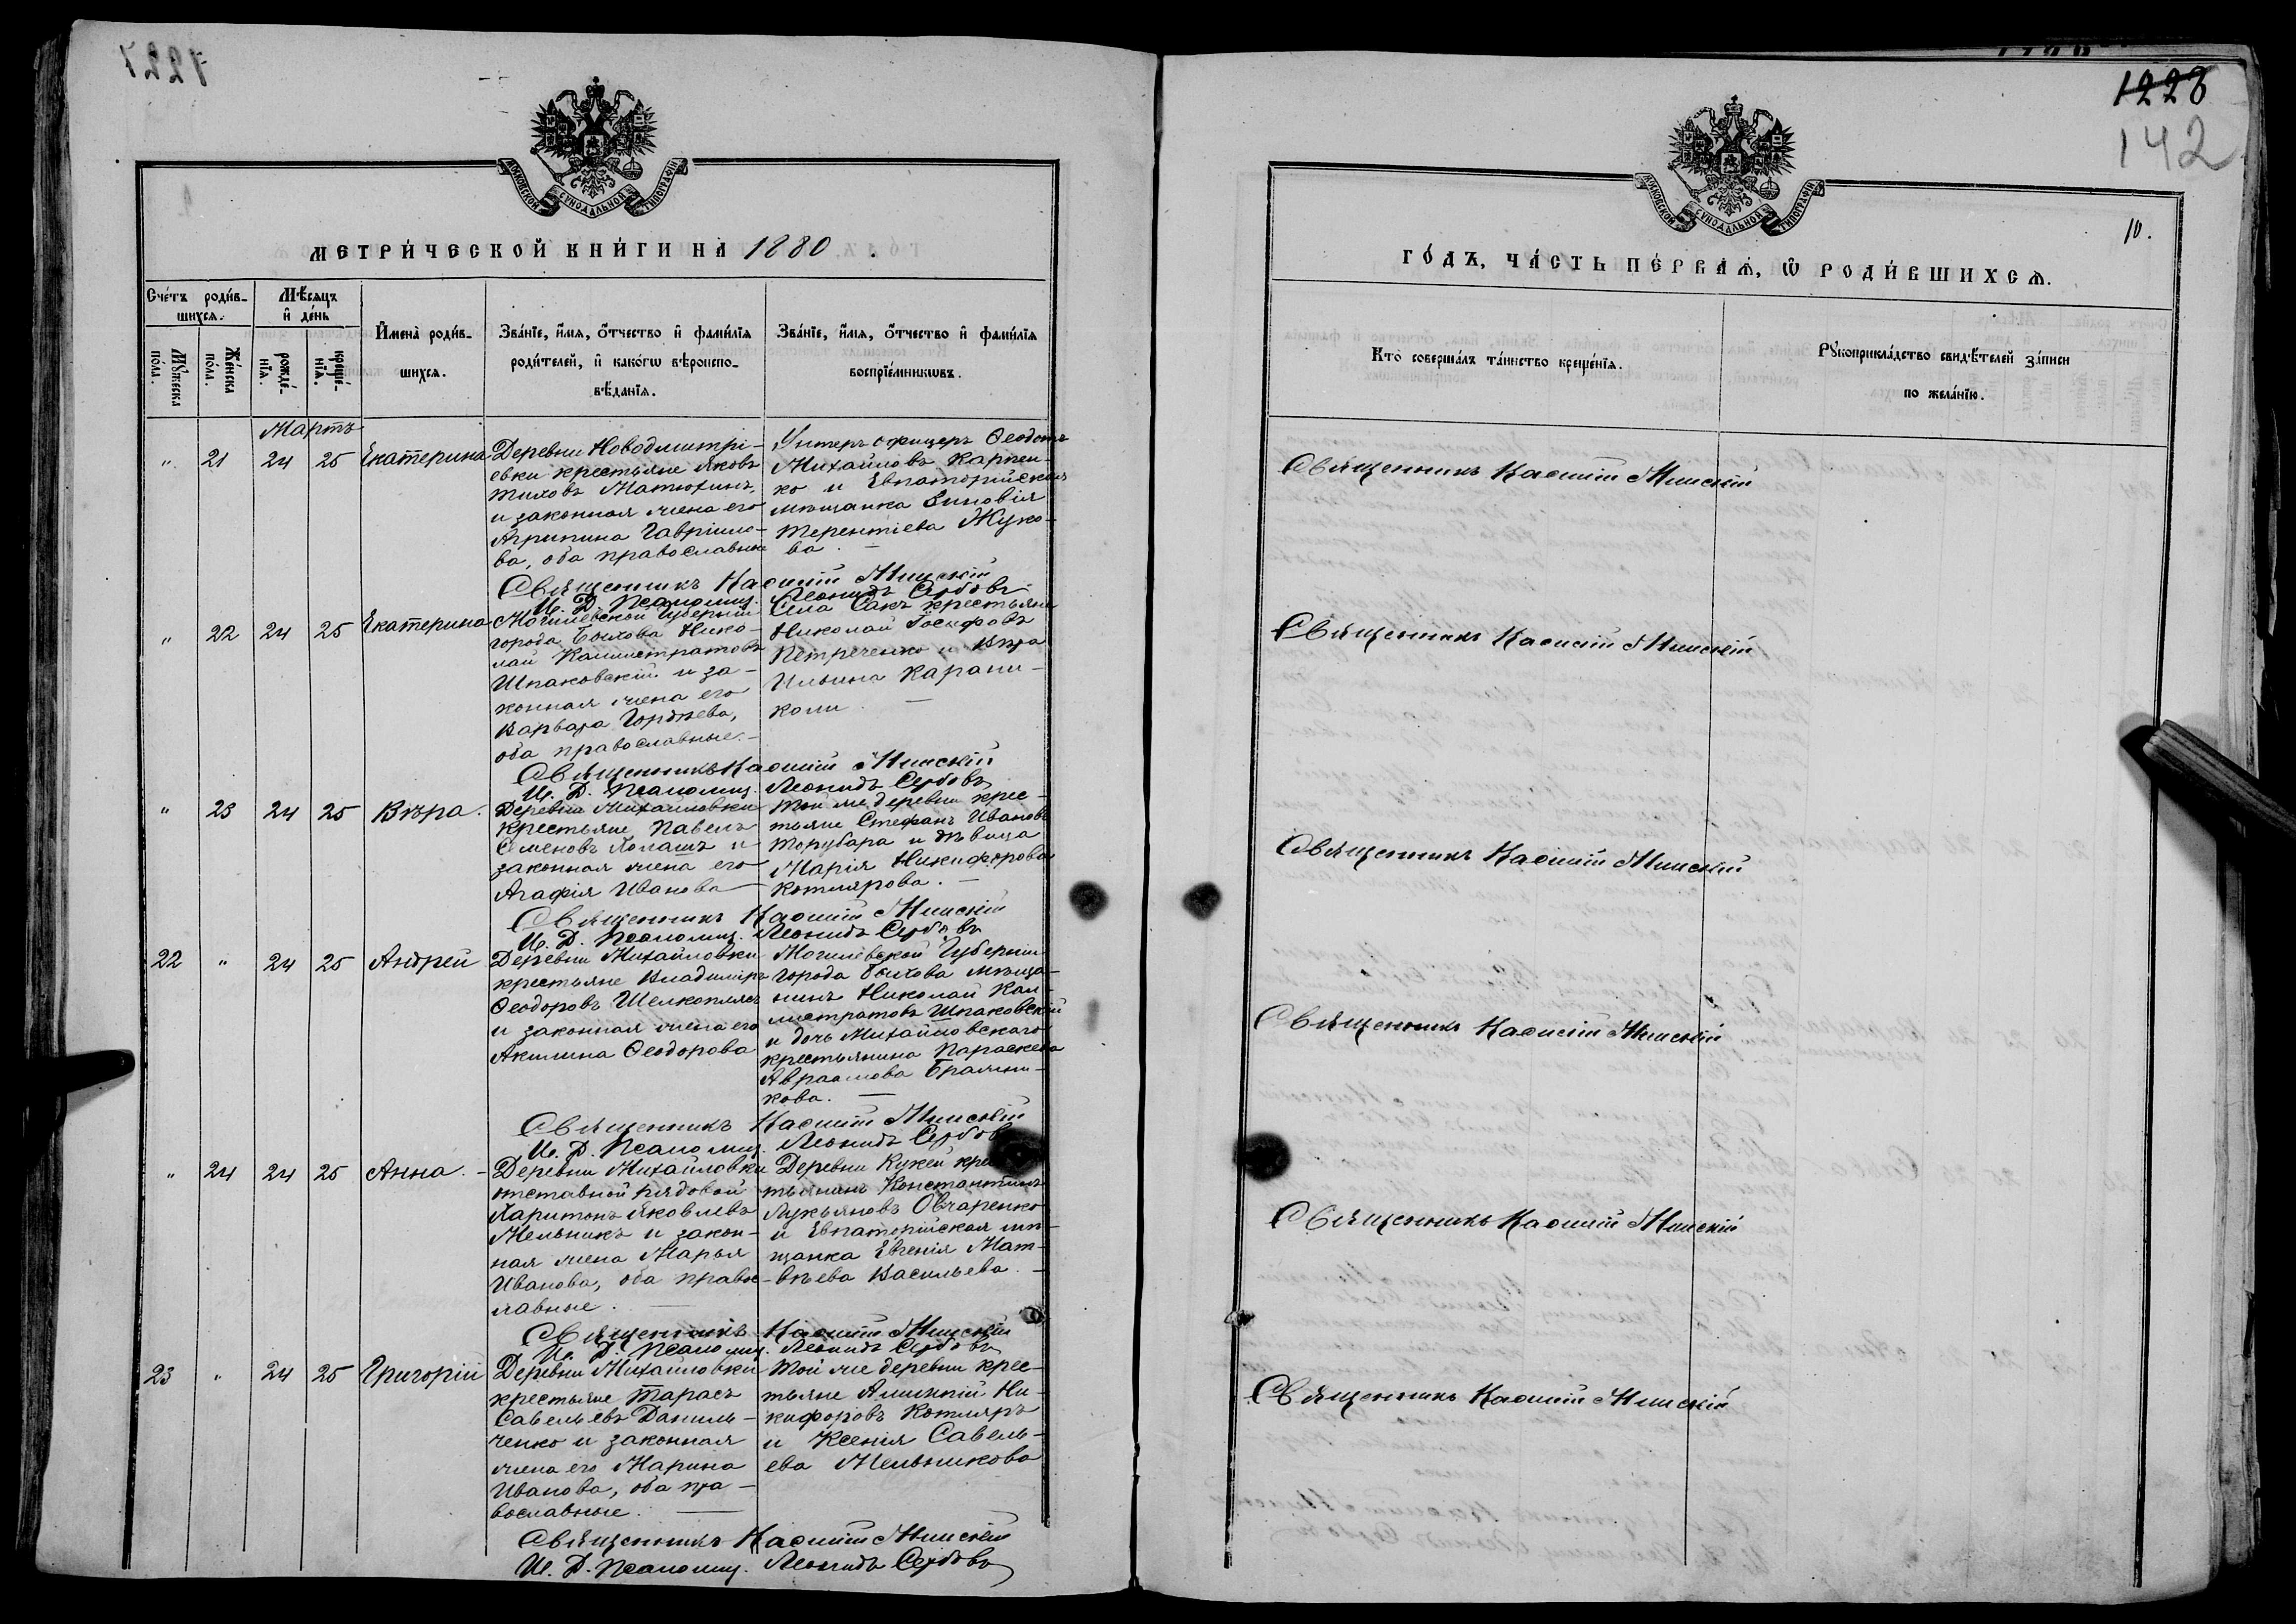 1227
МОСКОВСКОЙ СѴНОДАЛЬНОЙ ТИПОГРАФІИ
МЕТРИ́ЧЕСКОЙ КНИ́ГИ НА 1880
Сче́тъ роди́в-
шихся.
Мѣ́сяцъ
и҆ де́нь
Мꙋ́жеска
по́ла.
Же́нска
по́ла.
рожде́-
нїѧ.
креще́-
нїѧ.
И҆мена̀ роди́в-
шихсѧ.
Зва́нїе, и҆́мѧ, ѻ҆́тчество и҆ фами́лїѧ
роди́телей, и҆ како́гѡ вѣроиспо-
вѣ́данїѧ.
Зва́нїе, и҆́мѧ, ѻ҆́тчество и҆ фами́лїѧ
воспрїе́мникѡвъ.
Мартъ
" 21 24 25 Екатерина
Деревни Новодмитрі-
евки крестьяне Яковъ
Тиховъ Матюхинъ,
и законная жена его
Агрипина Гавріило-
ва, оба православные
Унтеръ офицеръ Ѳеодотъ
Михайловъ Карпен-
ко и Евпаторійская
мѣщанка Зиновія
Терентіева Жуко-
ва. —
Священникъ Минскій
И. Д. Псаломщ. Леонидъ Сербовъ
" 22 24 25 Екатерина
Могилевской Губерніи
города Быхова Нико-
лай Каллистратовъ
Шпаковскій и за-
конная жена его
Варвара Гордѣева,
оба православные. —
Села Сакъ крестьяне
Николай Іосифовъ
Петреченко и Вѣра
Ильина Карани-
коли. —
Священникъ Минскій
И. Д. Псаломщ. Леонидъ Сербовъ
" 23 24 25 Вѣра.
Деревни Михайловки
крестьяне Павелъ
Семеновъ и
законная жена его
Агафія Иванова
Той же деревни крес-
тьяне Стефанъ Ивановъ
Торубара и дѣвица
Марія Никифорова
Котлярова. —
Священникъ Минскій
И. Д. Псаломщ. Леонидъ Сербовъ
22 " 24 25 Андрей
Деревни Михайловки
крестьяне Владиміръ
Ѳеодоровъ Шелкоплясъ
и законная жена его
Акилина Ѳеодорова
Могилевской Губерніи
города Быхова мѣща-
нинъ Николай Кал-
листратовъ Шпаковскій
и дочь Михайловскаго
крестьянина Параскева
Авраамова Бражни-
кова. —
Священникъ Минскій
И. Д. Псаломщ. Леонидъ Сербовъ
" 24 24 25 Анна. —
Деревни Михайловки
отставной рядовой
Харитонъ Яковлевъ
Мельникъ и закон-
ная жена Марья
Иванова, оба правос-
лавные. —
Деревни крес-
тьянинъ Константинъ
Лукьяновъ Овчаренко
и Евпаторійская мѣ-
щанка Евгенія Мат-
вѣева Васильева. —
Священникъ Минскій
И. Д. Псаломщ. Леонидъ Сербовъ
23 " 24 25 Григорій
Деревни Михайловки
крестьяне Тарасъ
Савельевъ Даниль-
ченко и законная
жена его Марина
Иванова, оба пра-
вославные. —
Той же деревни крес-
тьяне Алимпій Ни-
кифоровъ Котляръ
и Ксенія Савель-
ева Мельникова
Священникъ Минскій
И. Д. Псаломщ. Леонидъ Сербовъ
1228
142
10.
МОСКОВСКОЙ СѴНОДАЛЬНОЙ ТИПОГРАФІИ
ГО́ДЪ, ЧА́СТЬ ПЕ́РВАѦ, Ѡ҆ РОДИ́ВШИХСѦ.
Кто̀ соверша́лъ та́инство креще́нїѧ.
Рꙋкоприкла́дство свидѣ́телей за́писи
по жела́нїю.
Священникъ Минскій
Священникъ Минскій
Священникъ Минскій
Священникъ Минскій
Священникъ Минскій
Священникъ Минскій